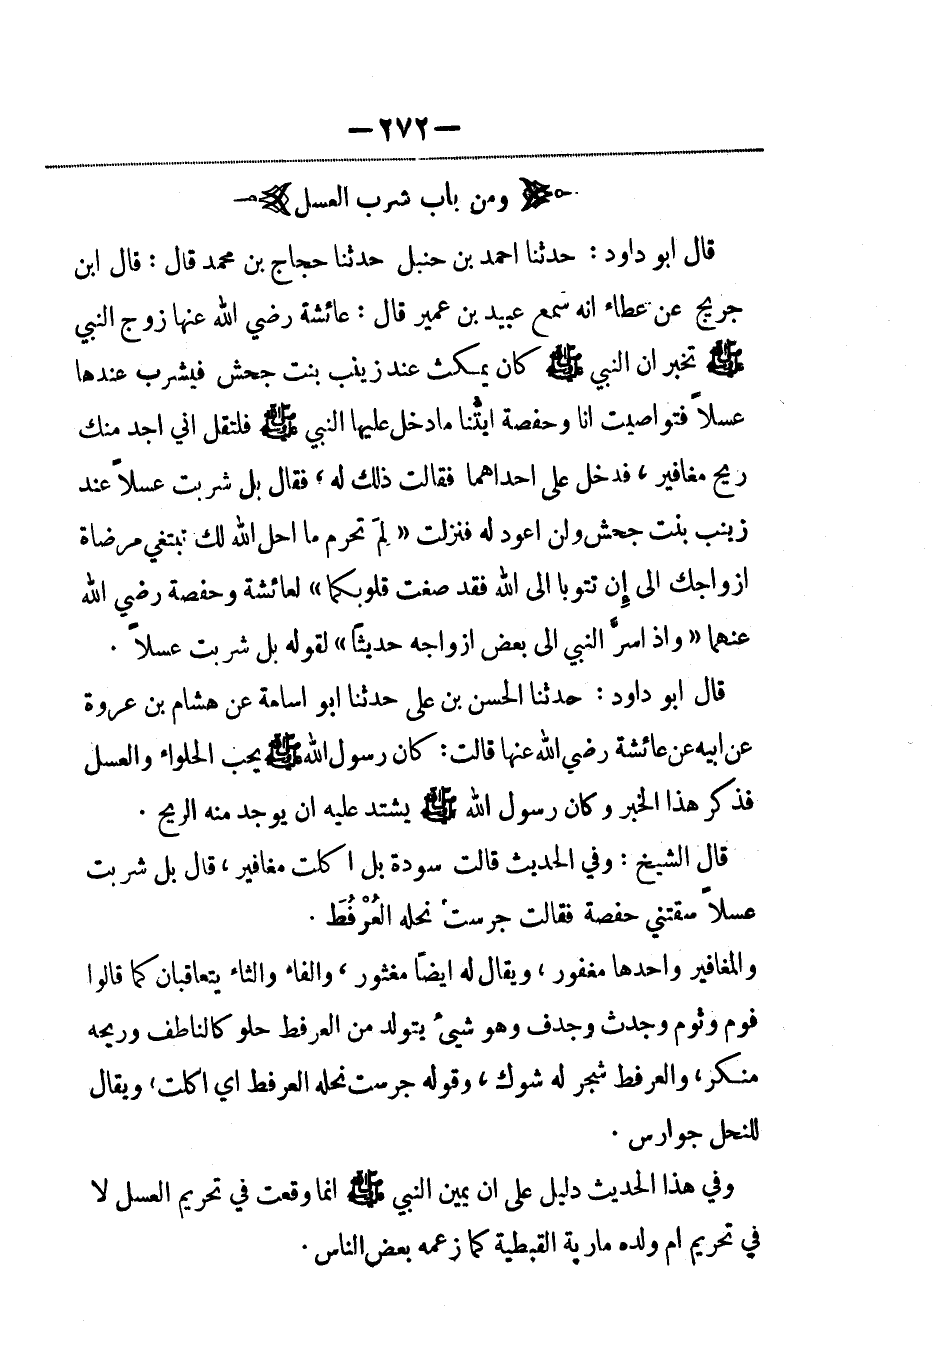 —٢٧٢—
ومن باب شرب العسل
قال ابو داود : حدثنا احمد بن حنبل حدثنا حجاج بن محمد قال : قال ابن
جريج عن عطاء انه سَمع عبيد بن عمير قال : عائشة رضي الله عنها زوج النبي
ﷺ تخبر ان النبي ﷺ كان يمكث عند زينب بنت جحش فيشرب عندها
عسلاً فتواصيت انا وحفصة ايتُنا مادخل عليها النبي ﷺ فلتقل اني اجد منك
ريح مغافير ، فدخل على احداهما فقالت ذلك له ، فقال بل شربت عسلاً عند
زينب بنت جحش ولن اعود له فنزلت « لِمَ تحرم ما احل الله لك تبتغي مرضاة
ازواجك الى إن تتوبا الى الله فقد صغت قلوبكما » لعائشة وحفصة رضي الله
عنهما « واذ اسرَّ النبي الى بعض ازواجه حديثًا » لقوله بل شربت عسلاً .
قال ابو داود : حدثنا الحسن بن علي حدثنا ابو اسامة عن هشام بن عروة
عن ابيه عن عائشة رضي الله عنها قالت : كان رسول الله ﷺ يحب الحلواء والعسل
فذكر هذا الخبر وكان رسول الله ﷺ يشتد عليه ان يوجد منه الريح .
قال الشيخ : وفي الحديث قالت سودة بل اكلت مغافير ، قال بل شربت
عسلاً سقتني حفصة فقالت جرست نحله العُرْفُطَ .
والمغافير واحدها مغفور ، ويقال له ايضًا مغثور ، والفاء والثاء يتعاقبان كما قالوا
فوم وثوم وجدث وجدف وهو شيئ يتولد من العرفط حلو كالناطف وريحه
منكر ، والعرفط شجر له شوك ، وقوله جرست نحله العرفط اي اكلت ، ويقال
للنحل جوارس .
وفي هذا الحديث دليل على ان يمين النبي ﷺ انما وقعت في تحريم العسل لا
في تحريم ام ولده مارية القبطية كما زعمه بعض الناس .